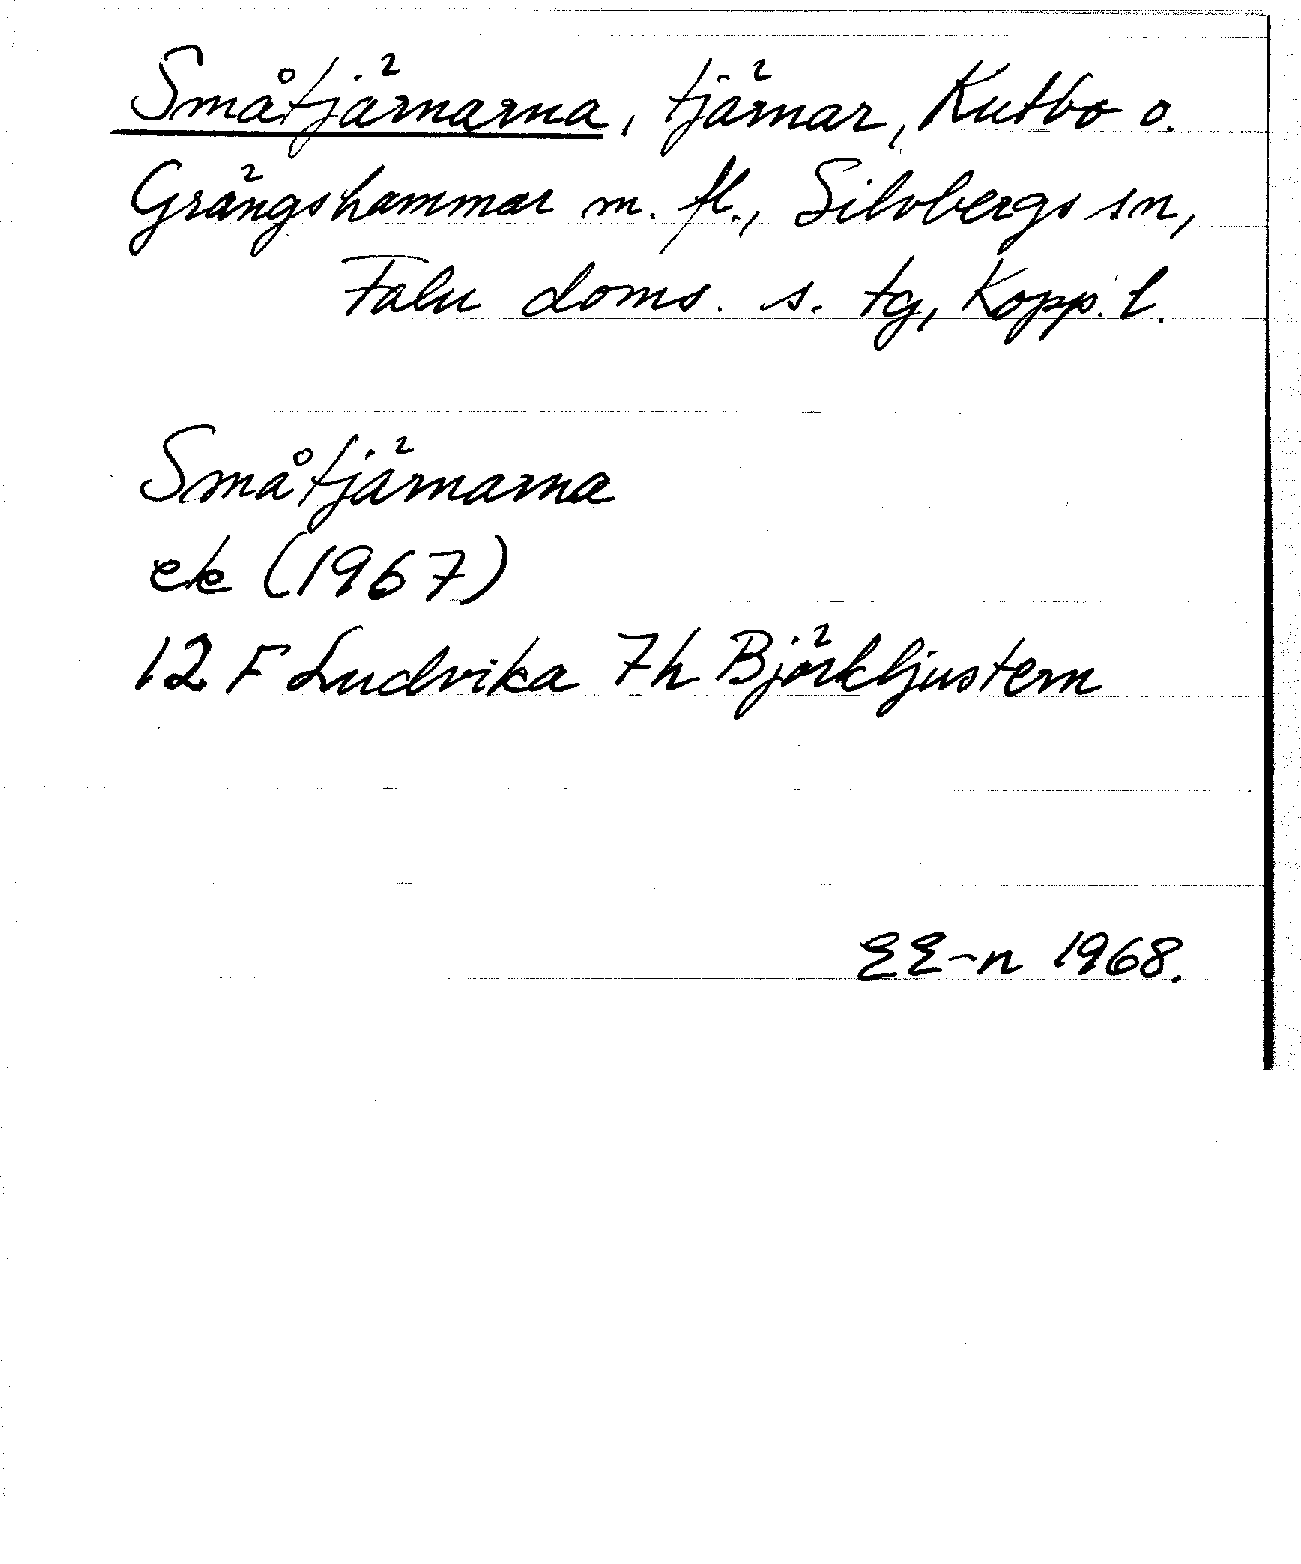 Småtjärnarna, tjärnar, Kutbo o.
Grängshammar m. fl., Silvbergs sn,
Falu doms. s. tg, Kopp. l.
Småtjärnarna
ek (1967)
12 F Ludvika 7h Björkljustern
EE-n 1968.